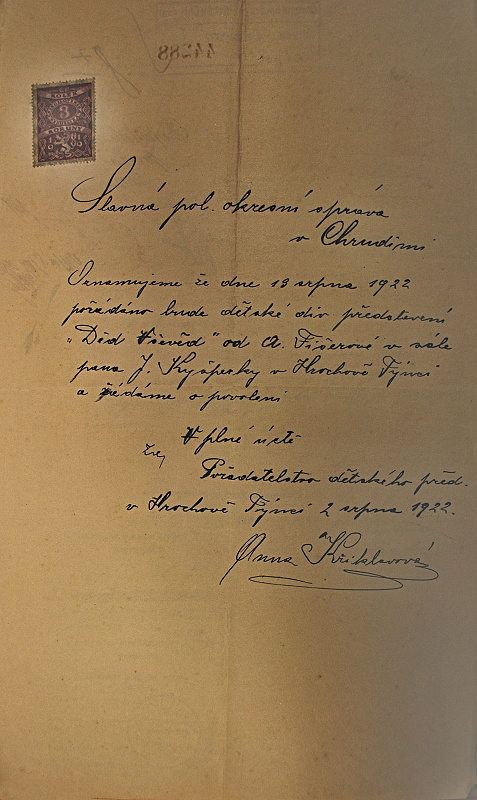 44288
KOLEK
3
KORUNY
Slavná pol. okresní správa
v Chrudimi
Oznamujeme že dne 13 srpna 1922
pořádáno bude dětské div představení
„Děd Vševěd" od A. Fišerové v sále
pana J. Kyšperky v Hrochově Týnci
a žádáme o povolení
V plné úctě
za
Pořadatelstvo dětského před.
v Hrochově Týnci 2 srpna 1922.
Anna Křiklavová